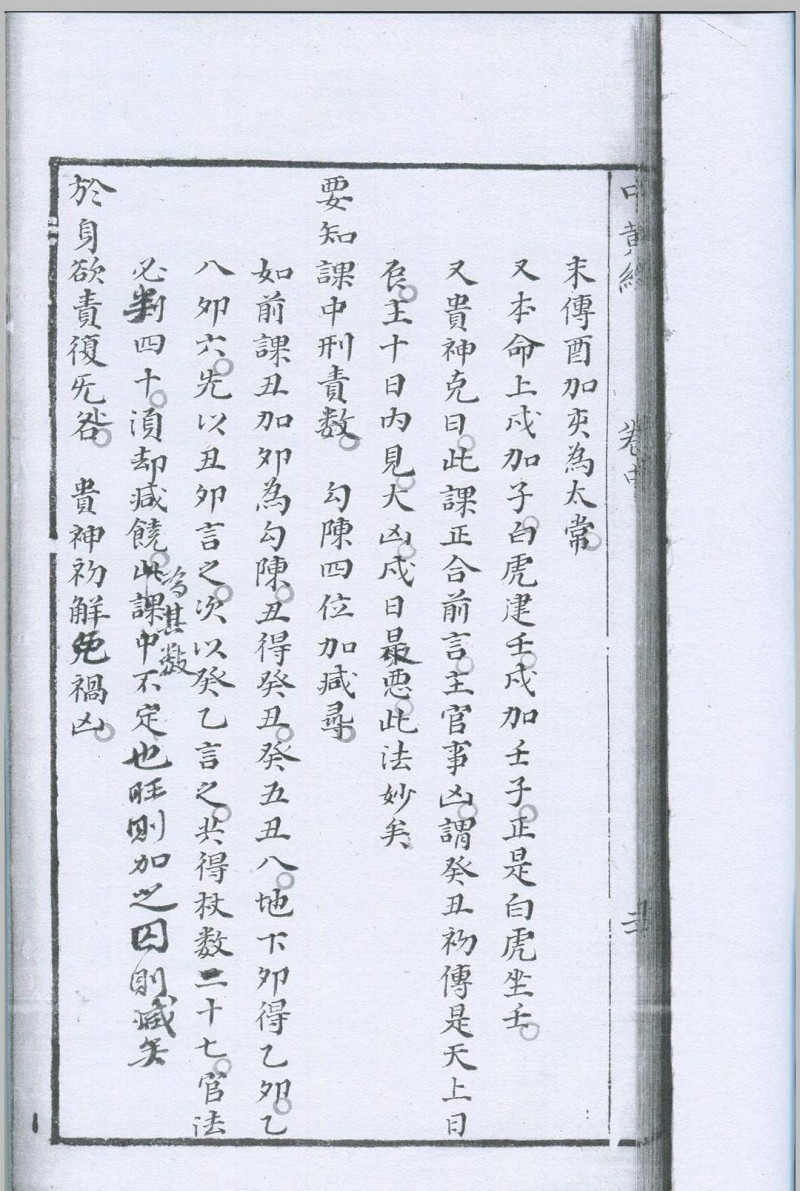 中黃經　卷中
末傳酉加亥為太常
又本命上戍加子白虎建壬戍加壬子正是白虎坐壬
又貴神克日此課正合前言主官事凶謂癸丑初傳是天上日
辰主十日內見大凶戍日最悪此法妙矣
要知課中刑責數　勾陳四位加减尋
如前課丑加夘為勾陳丑得癸丑癸五丑八地下夘得乙夘乙
八夘六先以丑夘言之次以癸乙言之共得杖數二十七官法
必判四十湏却减饒此課中不定也旺則加之囚則减矣
為其數
於身欲責復旡咎　貴神初解免禍凶